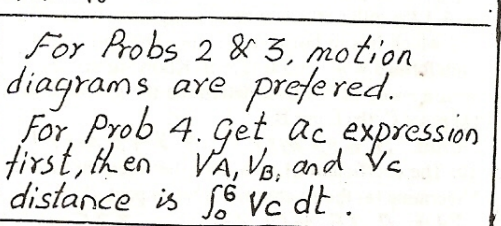 For Probs 2 & 3, motion
diagrams are prefered.
For Prob 4. Get ac expression
first, then VA, VB, and Vc
distance is ∫₀⁶ Vc dt.